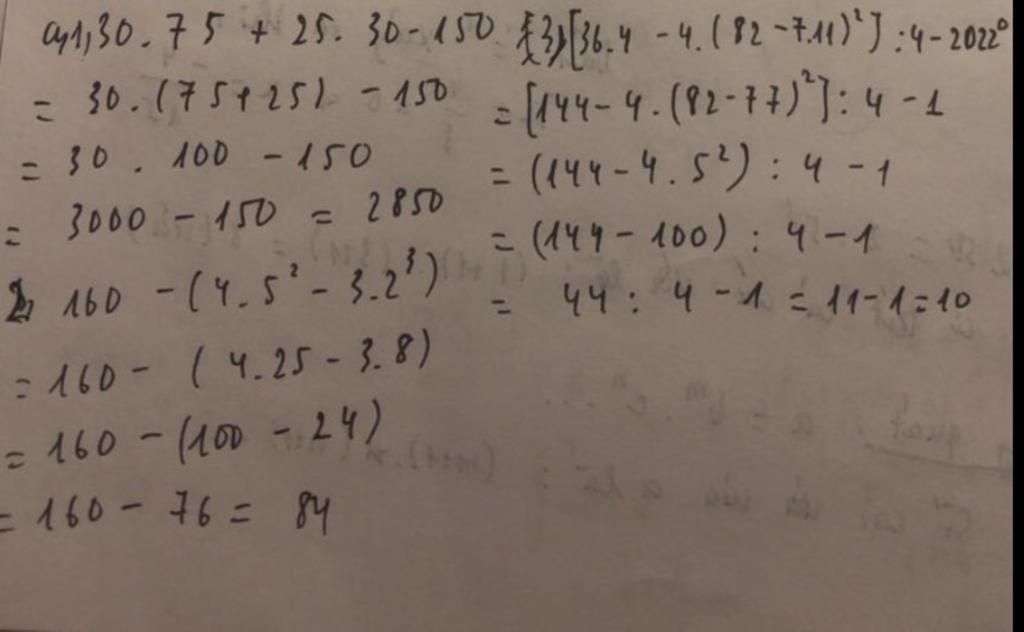 a, 1, 30 . 75 + 25 . 30 - 150
= 30 . (75 + 25) - 150
= 30 . 100 - 150
= 3000 - 150 = 2850
2, 160 - (4.5² - 3.2³)
= 160 - (4.25 - 3.8)
= 160 - (100 - 24)
= 160 - 76 = 84
3, [36.4 - 4.(82 - 7.11)²] : 4 - 2022⁰
= [144 - 4.(82 - 77)²] : 4 - 1
= (144 - 4.5²) : 4 - 1
= (144 - 100) : 4 - 1
= 44 : 4 - 1 = 11 - 1 = 10